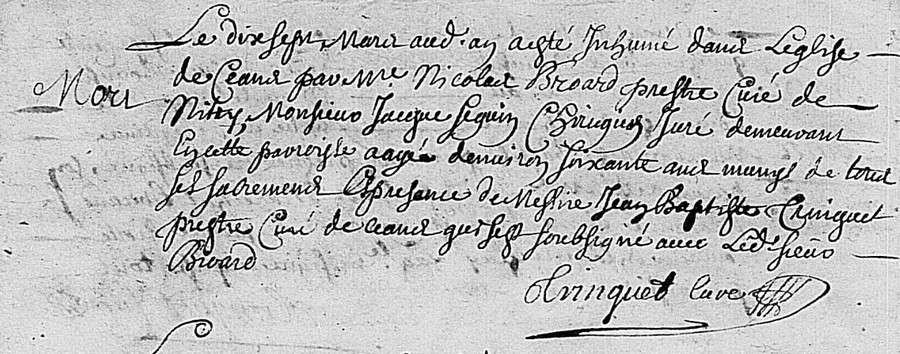 Le dixsept Mars aud. an a esté Inhumé dans Leglise
de Ceans par Mre Nicolas Broard prestre Curé de
Mort
Nitry, Monsieur Jacque Seguin Chirugien Juré demeurant
En cette parroisse aagé denviron soixante ans munys de tous
ses sacremens En presence de Messire Jean Baptiste Trinquet
prestre Curé de ceans qui sest soubsigné avec Led. sieur
Broard
Trinquet Curé